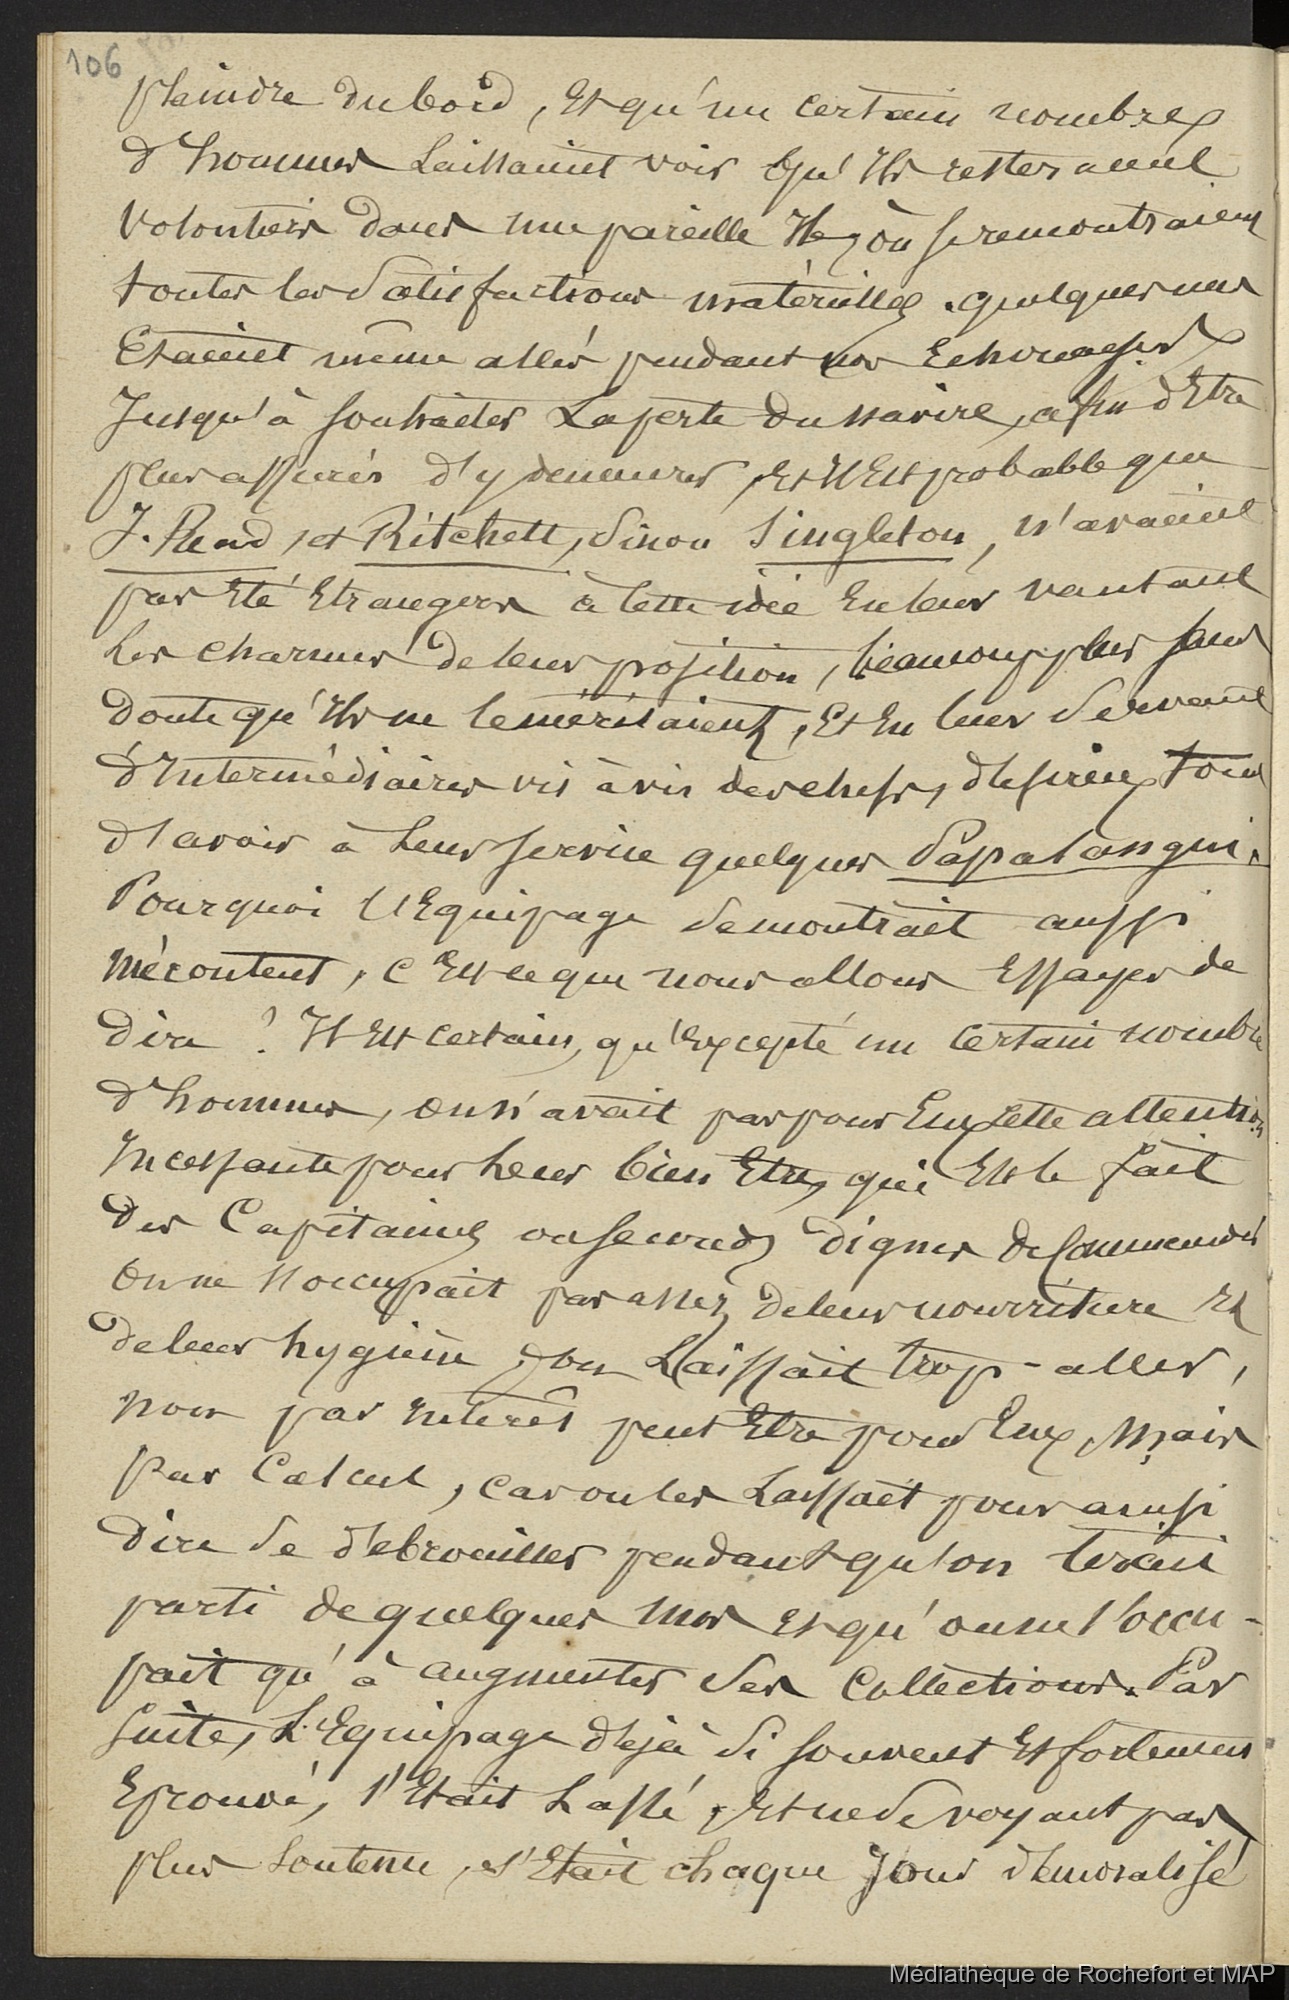 106
plaindre du bord, et qu'un certain nombre
d'hommes laissaient voir qu'ils resteraient
volontiers dans une pareille Ile, où se rencontraient
toutes les satisfactions matérielles. quelques uns
Etaient même allés pendant nos Echouages
Jusqu'à souhaiter La perte du navire, afin d'Etre
plus assurés d'y demeurer, Et Il Est probable que
J. Read, et Ritchett, sinon Singleton, n'avaient
pas Eté Etrangers à cette idée En leur vantant
Les charmes de leur position, beaucoup plus sans
doute qu'Ils ne le méritaient, Et En leur servant
d'Intermédiaires vis à vis des chefs, désireux tous
d'avoir à Leur service quelques Papalangui.
Pourquoi l'Equipage se montrait aussi
mécontent, c'Est ce que nous allons Essayer de
dire ? Il Est certain, qu'Excepté un certain nombre
d'hommes, on n'avait pas pour Eux cette attention
Incessante pour Leur bien Etre, qui Est le fait
des Capitaines ou seconds dignes de Commander
On ne s'occupait pas assez de leur nourriture Et
de leur hygiène, on Laissait trop-aller,
non par Intérêt peut Etre pour Eux, Mais
par Calcul, car on les Laissait pour ainsi
dire se débrouiller pendant qu'on tirait
parti de quelques uns Et qu'on ne s'occu-
pait qu'à augmenter ses Collections. Par
suite, L'Equipage déjà si souvent Et fortement
Eprouvé, s'Etait Lassé, Et ne se voyant pas
plus soutenu, s'Etait chaque Jour démoralisé
Médiathèque de Rochefort et MAP